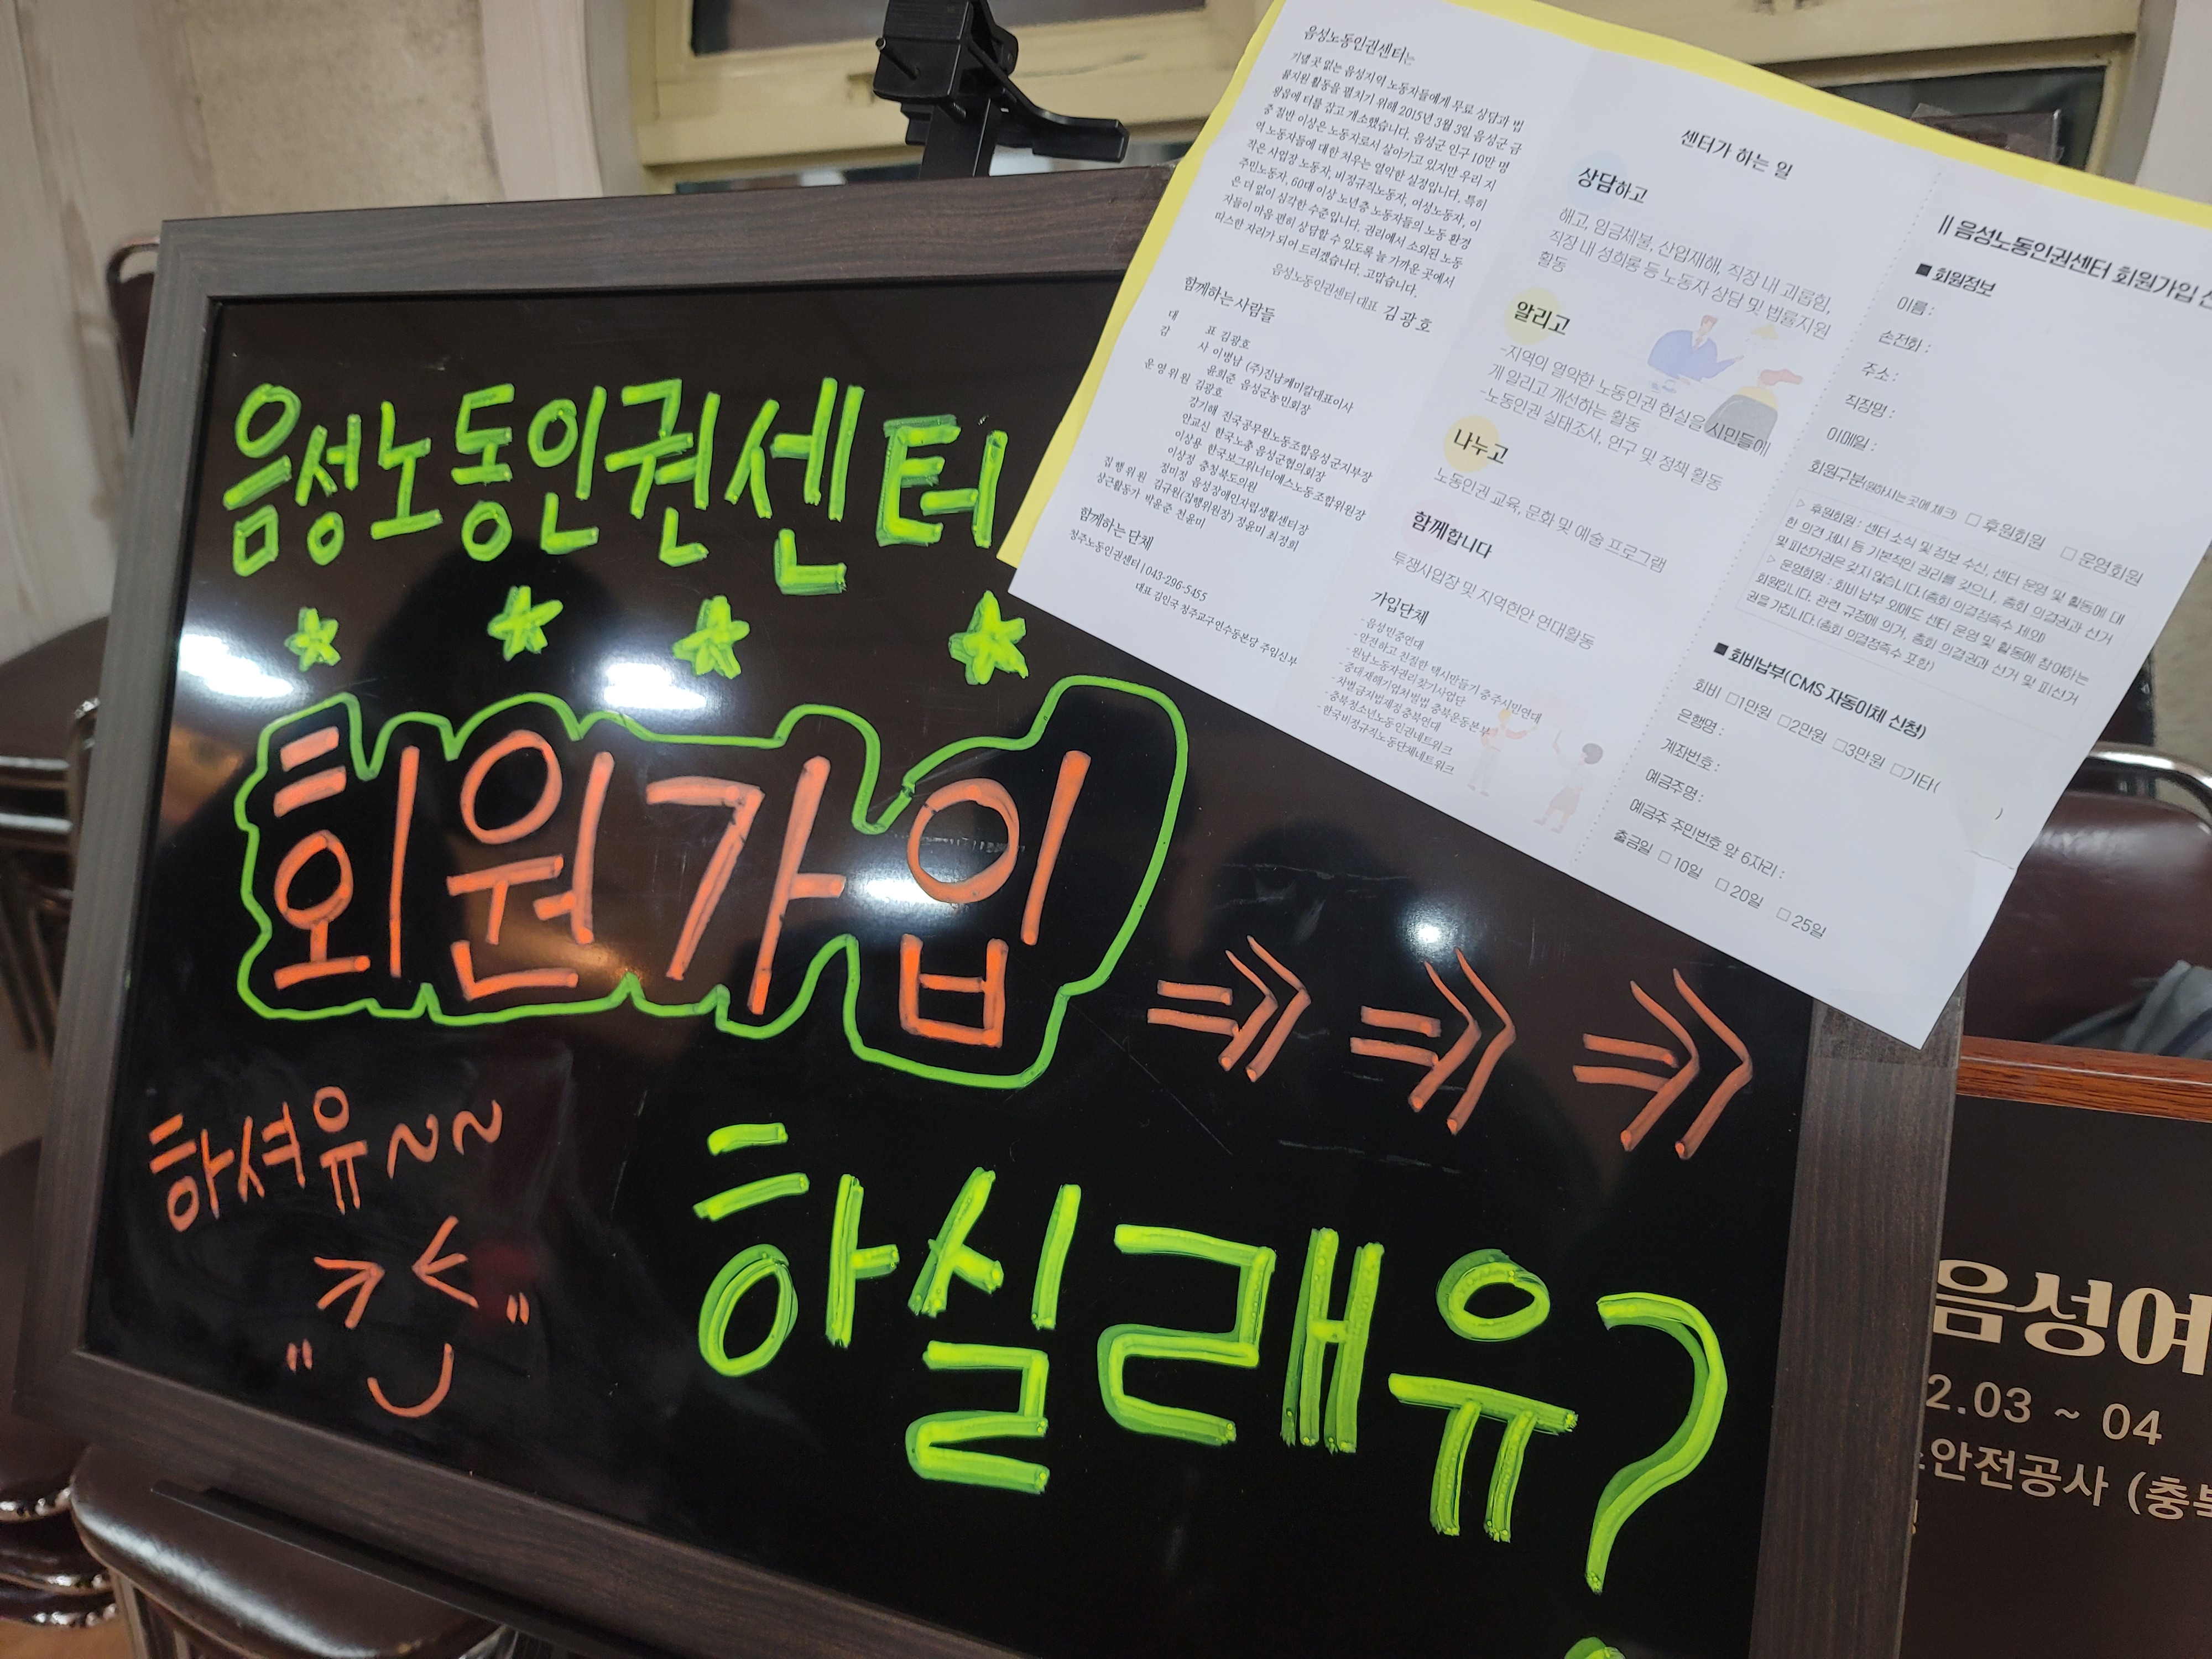 음성노동인권센터
회원가입
하셔유~~
하실래유?
음성노동인권센터는
기댈 곳 없는 음성지역 노동자들에게 무료 상담과 법
률지원 활동을 펼치기 위해 2015년 3월 3일 음성군 금
왕읍에 터를 잡고 개소했습니다. 음성군 인구 10만 명
중 절반 이상은 노동자로서 살아가고 있지만 우리 지
역 노동자들에 대한 처우는 열악한 실정입니다. 특히
작은 사업장 노동자, 비정규직노동자, 여성노동자, 이
주민노동자, 60대 이상 노년층 노동자들의 노동 환경
은 더 없이 심각한 수준입니다. 권리에서 소외된 노동
자들이 마음 편히 상담할 수 있도록 늘 가까운 곳에서
따스한 자리가 되어 드리겠습니다. 고맙습니다.
음성노동인권센터 대표 김광호
함께하는 사람들
대 표 김광호
감 사 이병남 (주)진남케미칼대표이사
윤희준 음성군농민회장
운영위원 김광호
강기해 전국공무원노동조합음성군지부장
안교신 한국노총 음성군협의회장
이상용 한국보그워너티에스노동조합위원장
이상정 충청북도의원
정미정 음성장애인자립생활센터장
집행위원 김규원(집행위원장) 정윤미 최정희
상근활동가 박윤준 천윤미
함께하는 단체
청주노동인권센터 | 043-296-5455
대표 김인국 청주교구연수동본당 주임신부
센터가 하는 일
상담하고
해고, 임금체불, 산업재해, 직장 내 괴롭힘,
직장 내 성희롱 등 노동자 상담 및 법률지원
활동
알리고
-지역의 열악한 노동인권 현실을 시민들에
게 알리고 개선하는 활동
-노동인권 실태조사, 연구 및 정책 활동
나누고
노동인권 교육, 문화 및 예술 프로그램
함께합니다
투쟁사업장 및 지역현안 연대활동
가입단체
- 음성민중연대
- 안전하고 친절한 택시만들기 충주시민연대
- 원남노동자권리찾기사업단
- 중대재해기업처벌법 충북운동본부
- 차별금지법제정충북연대
- 충북청소년노동인권네트워크
- 한국비정규직노동단체네트워크
|| 음성노동인권센터 회원가입
■ 회원정보
이름 :
손전화 :
주소 :
직장명 :
이메일 :
회원구분(원하시는곳에 체크) □ 후원회원 □ 운영회원
▷ 후원회원 : 센터 소식 및 정보 수신, 센터 운영 및 활동에 대
한 의견 제시 등 기본적인 권리를 갖으나, 총회 의결권과 선거
및 피선거권은 갖지 않습니다.(총회 의결정족수 제외)
▷ 운영회원 : 회비 납부 외에도 센터 운영 및 활동에 참여하는
회원입니다. 관련 규정에 의거, 총회 의결권과 선거 및 피선거
권을 가집니다.(총회 의결정족수 포함)
■ 회비납부(CMS 자동이체 신청)
회비 □1만원 □2만원 □3만원 □기타( )
은행명 :
계좌번호 :
예금주명 :
예금주 주민번호 앞 6자리 :
출금일 □ 10일 □ 20일 □ 25일
음성여
2.03 ~ 04
안전공사 (충